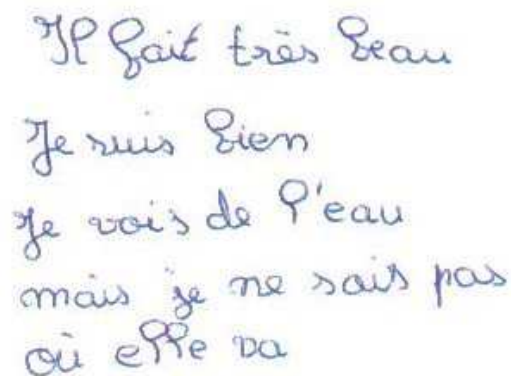 Il fait très beau
Je suis bien
Je vois de l'eau
mais je ne sais pas
où elle va